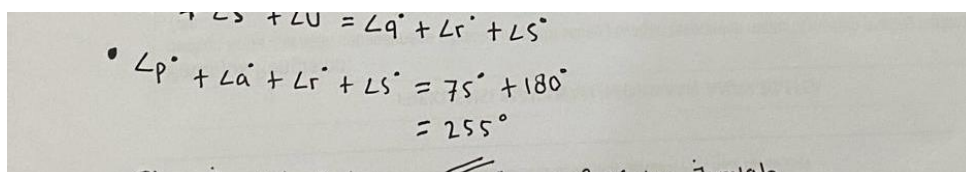 + ∠s + ∠U = ∠q° + ∠r° + ∠s°
• ∠p° + ∠a° + ∠r° + ∠s° = 75° + 180°
= 255°